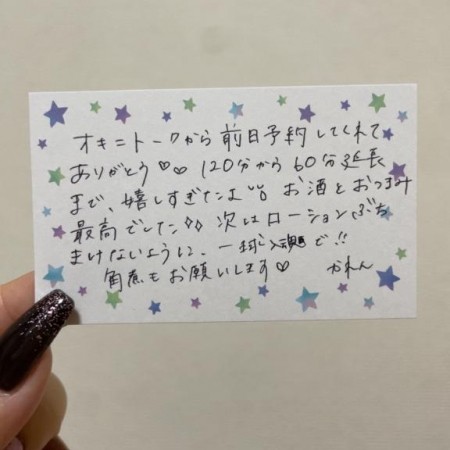 オキニトークから前日予約してくれて
ありがとう♡♡ 120分から60分延長
まで、嬉しすぎたよ お酒とおつまみ
最高でした◊◊ 次はローションぶち
まけないように、一球入魂で!!
角煮もお願いします♡ かれん